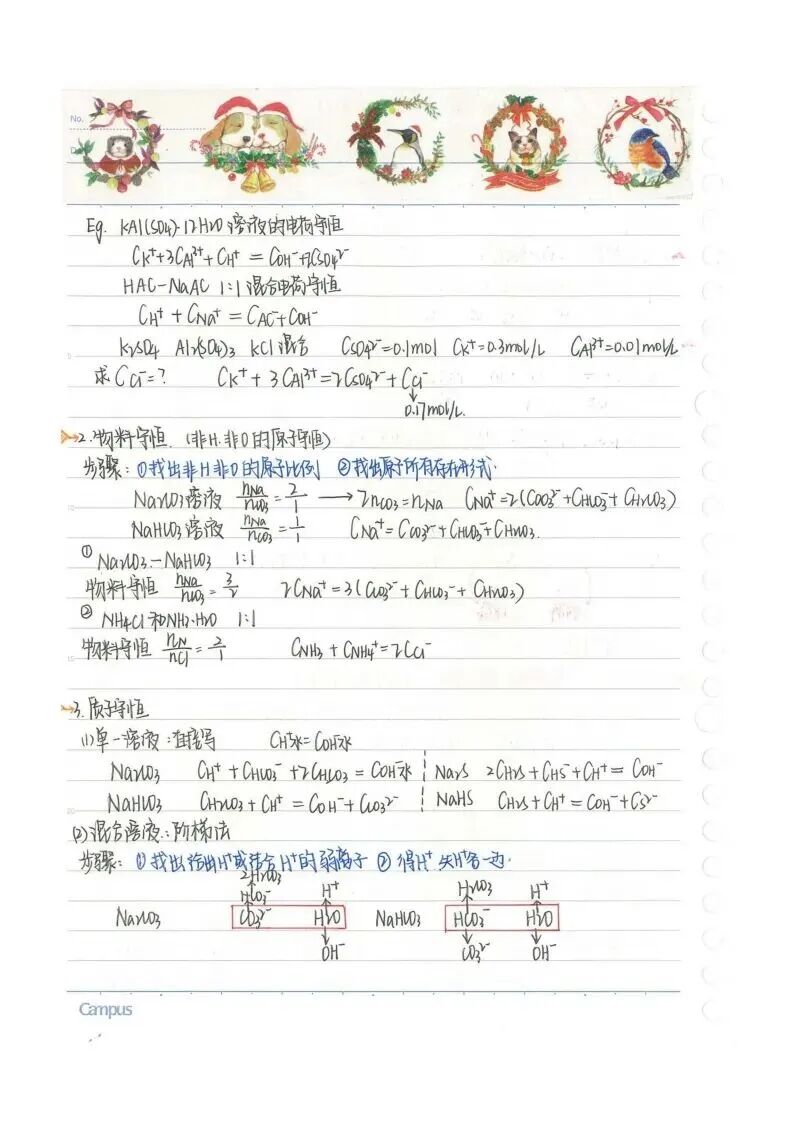 No.
D
Eg. KAl(SO4)·12H2O溶液的电荷守恒
CK⁺+3CAl³⁺+CH⁺ = COH⁻+2CSO4²⁻
HAC-NaAC 1:1混合电荷守恒
CH⁺ + CNa⁺ = CAC⁻+COH⁻
K2SO4 Al2(SO4)3 KCl混合 CSO4²⁻=0.1mol CK⁺=0.3mol/L CAl³⁺=0.01mol/L
求CCl⁻=? CK⁺ + 3CAl³⁺=2CSO4²⁻+CCl⁻
↓
0.17mol/L.
2.物料守恒.(非H.非O的原子守恒)
步骤:①找出非H非O的原子比例 ②找出原子所有存在形式.
Na2CO3溶液 nNa/nCO3=2/1 → 2nCO3=nNa CNa⁺=2(CCO3²⁻+CHCO3⁻+CH2CO3)
NaHCO3溶液 nNa/nCO3=1/1 CNa⁺=CCO3²⁻+CHCO3⁻+CH2CO3.
① Na2CO3-NaHCO3 1:1
物料守恒 nNa/nCO3=3/2 2CNa⁺=3(CCO3²⁻+CHCO3⁻+CH2CO3)
② NH4Cl和NH3·H2O 1:1
物料守恒 nN/nCl=2/1 CNH3+CNH4⁺=2CCl⁻
3.质子守恒
(1)单一溶液:直接写 CH⁺水=COH⁻水
Na2CO3 CH⁺+CHCO3⁻+2CH2CO3=COH⁻水 Na2S 2CH2S+CHS⁻+CH⁺=COH⁻
NaHCO3 CH2CO3+CH⁺=COH⁻+CCO3²⁻ NaHS CH2S+CH⁺=COH⁻+CS²⁻
(2)混合溶液:阶梯法
步骤:①找出给出H⁺或结合H⁺的弱离子 ②得H⁺失H⁺各一边.
2H2CO3
↑
HCO3⁻ H⁺ H2CO3 H⁺
↑ ↑ ↑ ↑
Na2CO3 CO3²⁻ H2O NaHCO3 HCO3⁻ H2O
↓ ↓ ↓
OH⁻ CO3²⁻ OH⁻
Campus